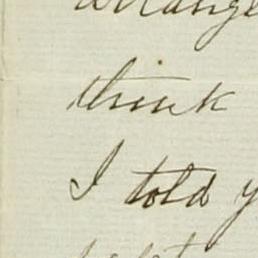 arrange
think
I told y